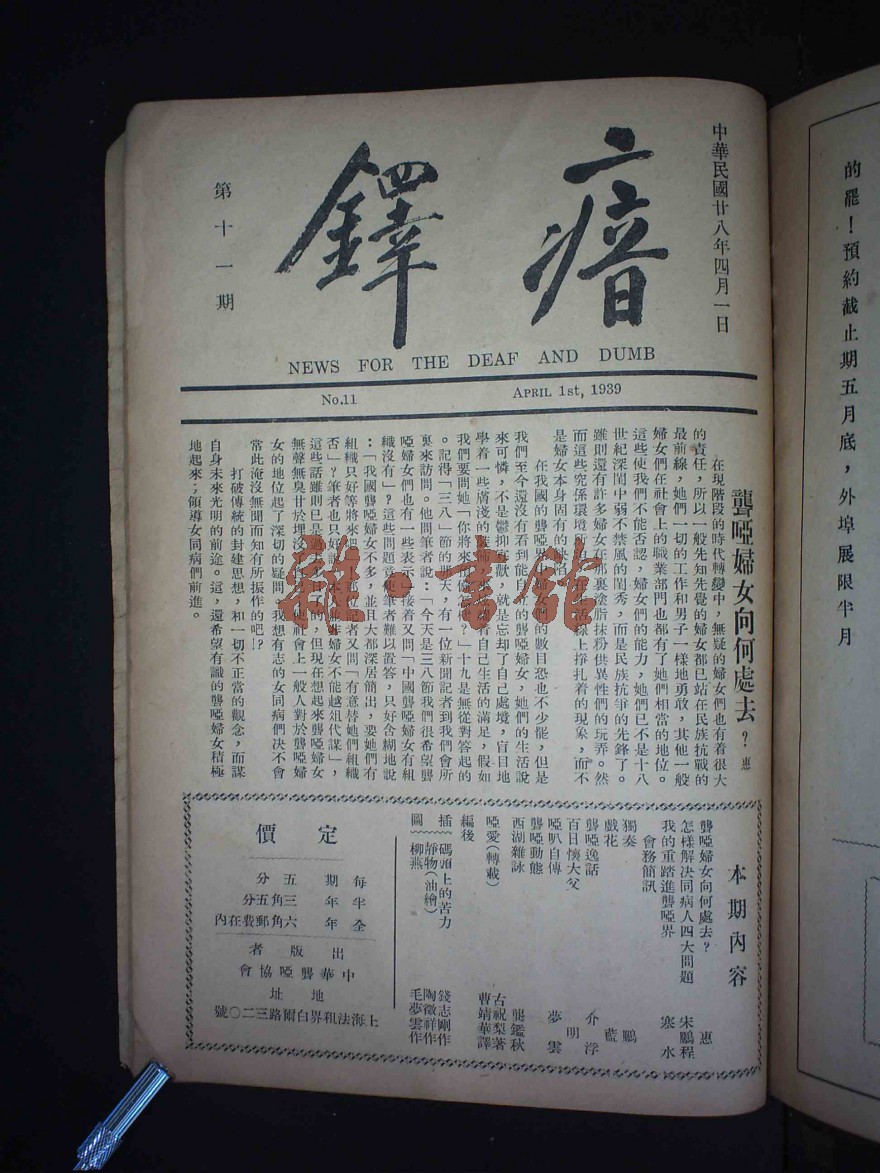 中華民國廿八年四月一日
瘖鐸
第十一期
NEWS FOR THE DEAF AND DUMB
No.11
APRIL 1st, 1939
聾啞婦女向何處去？ 惠
在現階段的時代轉變中，無疑的婦女們也有着很大
的責任，所以一般先知先覺的婦女都已站在民族抗戰的
最前線，她們一切的工作和男子一樣地勇敢，其他一般
婦女們在社會上的職業部門也都有了她們相當的地位。
這些使我們不能否認，婦女們的能力，她們已不是十八
世紀深閨中弱不禁風的閨秀，而是民族抗爭的先鋒了。
雖則還有許多婦女在那裏塗脂抹粉供異性們的玩弄。然
而這些究係環境所 生活線上掙扎着的現象，而不
是婦女本身固有的
在我國的聾啞界 婦女們的數目恐也不少罷，但是
我們至今還沒有看到能自立的聾啞婦女，她們的生活說
來可憐，不是鬱抑 就是忘却了自己處境，盲目地
學着一些膚淺的 着自己生活的滿足，假如
我們要問她「你將來 樣？」十九是無從對答起的
。記得「三八」節的 天，有一位新聞記者到我們會所
裏來訪問。他問筆者說：「今天是三八節我們很希望聾
啞婦女們也有一些表示」接着又問「中國聾啞婦女有組
織沒有」？這些問題 使筆者難以置答，只好含糊地說
：「我國聾啞婦女不多，並且大都深居簡出，要她們有
組織只好等將來 」那位記者又問「有意替她們組織
否」？筆者也只好說 婦女不能越俎代謀」，
這些話雖則已是過去 了的，但現在想起來聾啞婦女
無聲無臭甘於埋沒 使社會上一般人對於聾啞婦
女的地位起了深切的疑問，我想有志的女同病們决不會
當此淹沒無聞而知有所振作的吧！？
打破傳統的封建思想，和一切不正常的觀念，而謀
自身未來光明的前途。這，還希望有識的聾啞婦女積極
地起來；領導女同病們前進。
本期內容
聾啞婦女向何處去？ 惠
怎樣解決同病人四大問題 宋鵬程
我的重踏進聾啞界 寒水
會務簡訊
獨奏 鵬
戲花 藍
聾啞逸話 介浮
百日懷大父 明
啞叭自傳 夢雲
聾啞動態
西湖雜詠 龔鑑秋
啞愛（轉載） 古祝梨著 曹靖華譯
編後
插圖
碼頭上的苦力 錢志剛作
靜物（油繪） 陶徵祥作
柳燕 毛夢雲作
定價
每期五分
半年三角五分
全年六角郵費在內
出版者
中華聾啞協會
地址
上海法租界白爾路三二〇號
的罷！預約截止期五月底，外埠展限半月
雜·書館